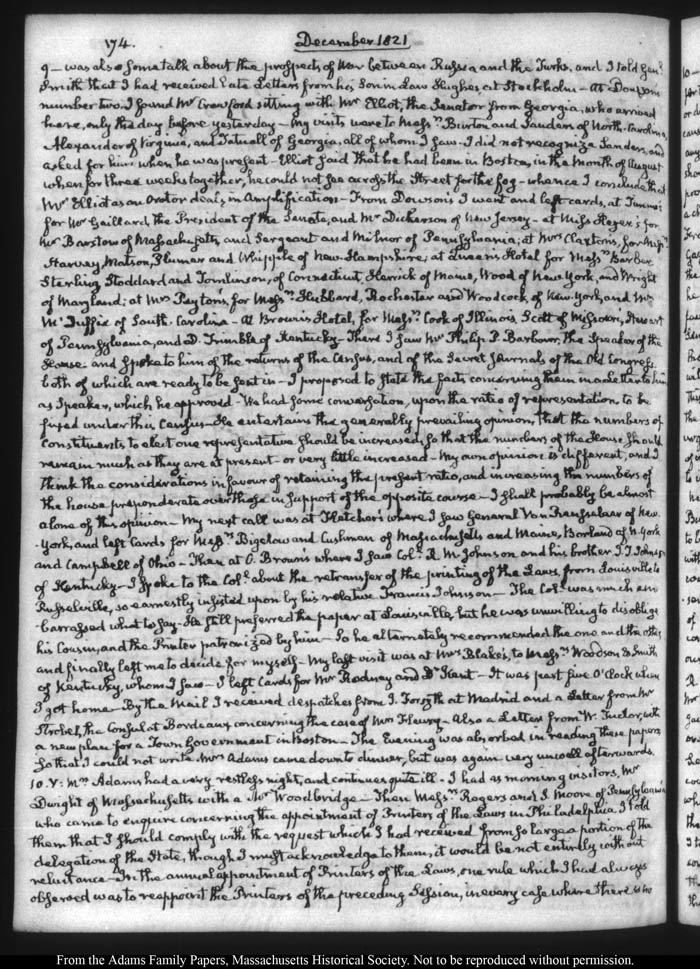 174. December 1821
9 – was also some talk about the prospects of War between Russia and the Turks, and I told Genl.
Smith that I had received late Letters from his Son in Law Hughes, at Stockholm – At Dowson's
number two, I found Mr Crawford sitting with Mr Elliot, the Senator from Georgia, who arrived
here, only the day before yesterday – My visits were to Messrs. Burton and Sanders of North-Carolina,
Alexander of Virginia, and Tatnall of Georgia, all of whom I saw – I did not recognize Sanders, and
asked for him when he was present – Elliot said that he had been in Boston, in the month of August
when for three weeks together, he could not see across the Street for the fog – whence I conclude that
Mr Elliot as an Orator deals in Amplification – From Dowson's I went and left cards, at
for Mr Gaillard, the President of the Senate, and Mr Dickerson of New Jersey – at Miss Heyer's for
Mr Barstow of Massachusetts, and Sergeant and Milnor of Pennsylvania; at Mrs Claxton's, for Messrs.
Harvey Matson, Plumer and Whipple of New-Hampshire; at Queen's Hotel for Messrs. Barber
Sterling Stoddard and Tomlinson, of Connecticut, Herrick of Maine, Wood of New York, and Wright
of Maryland; at Mrs Peyton's, for Messrs. Hubbard, Rochester and Woodcock of New-York, and Mr
McDuffie of South-Carolina – At Brown's Hotel, for Messrs. Cook of Illinois, Scott of Missouri, Stewart
of Pennsylvania, and D. Trimble of Kentucky – There I saw Mr Philip P. Barbour, the Speaker of the
House and spoke to him of the returns of the Census, and of the Secret Journals of the Old Congress.
both of which are ready to be sent in – I proposed to state the facts concerning them in a Letter to him
as Speaker, which he approved – We had some conversation, upon the ratio of representation to be
fixed under this Census – He entertains the generally prevailing opinion, that the numbers of
Constituents to elect one representative should be increased, so that the numbers of the House should
remain much as they are at present – or very little increased – My own opinion is different, and I
think the considerations in favour of retaining the present ratio, and increasing the numbers of
the house preponderate over those in support of the opposite course – I shall probably be almost
alone of this opinion – My next call was at Fletcher's where I saw General Van Rensselaer of New-
York, and left Cards for Messrs. Bigelow and Cushman of Massachusetts and Maine, Borland of N. York
and Campbell of Ohio – Then at O. Brown's where I saw Coll. R. M. Johnson and his brother J. T. Johnson
of Kentucky – I spoke to the Coll. about the retransfer of the printing of the Laws, from Louisville to
Russelville, so earnestly insisted upon by his relative Francis Johnson – The Coll. was much em-
barrassed what to say – He still preferred the paper at Louisville, but he was unwilling to disoblige
his Cousin, and the Printer patronized by him – So he alternately recommended the one and the other,
and finally left me to decide for myself – My last visit was at Mrs Blake's, to Messrs. Woodson & Smith
of Kentucky, whom I saw – I left Cards for Mr Rodney and Dr Kent – It was past five O'Clock when
I got home – By the Mail I received despatches from J. Forsyth at Madrid and a Letter from Mr
Strobel, the Consul at Bordeaux concerning the case of Mrs Fleury – Also a Letter from W. Tudor, with
a new plan for a Town Government in Boston – The Evening was absorbed in reading these papers,
so that I could not write. Mrs Adams came down to dinner, but was again very unwell afterwards.
10. V: Mrs Adams had a very restless night, and continues quite ill – I had as morning visitors, Mr
Dwight of Massachusetts with a Mr Woodbridge – Then Messrs. Rogers and S. Moore of Pennsylvania
who came to enquire concerning the appointment of Printers of the Laws in Philadelphia. I told
them that I should comply with the request which I had received from so large a portion of the
delegation of the State, though I must acknowledge to them, it would be not entirely without
reluctance – In the annual appointment of Printers of the Laws, one rule which I had always
observed was to reappoint the Printers of the preceding Session, in every case where there is no
From the Adams Family Papers, Massachusetts Historical Society. Not to be reproduced without permission.